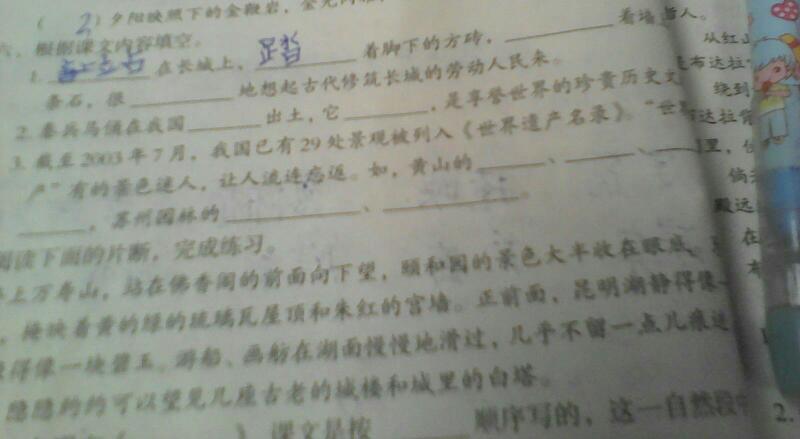 ( 2 ) 夕阳映照下的金鞭岩,金光闪
六、根据课文内容填空。
1. 在长城上, 踏 着脚下的方砖, 着墙 人。
条石,很 地想起古代修筑长城的劳动人民来。
2. 秦兵马俑在我国 出土,它 ,是享誉世界的珍贵历史文
3. 截至 2003 年 7 月,我国已有 29 处景观被列入《世界遗产名录》。“世界
产”有的景色迷人,让人流连忘返。如,黄山的 、 、
,苏州园林的 、 。
阅读下面的片断,完成练习。
上万寿山,站在佛香阁的前面向下望,颐和园的景色大半收在眼底。
,掩映着黄的绿的琉璃瓦屋顶和朱红的宫墙。正前面,昆明湖静得像一
得像一块碧玉。游船、画舫在湖面慢慢地滑过,几乎不留一点儿痕迹
隐隐约约可以望见几座古老的城楼和城里的白塔。
课文是按 顺序写的,这一自然段中
从红山
布达拉
绕到
布达拉宫
里,
偏
殿远
在
2.